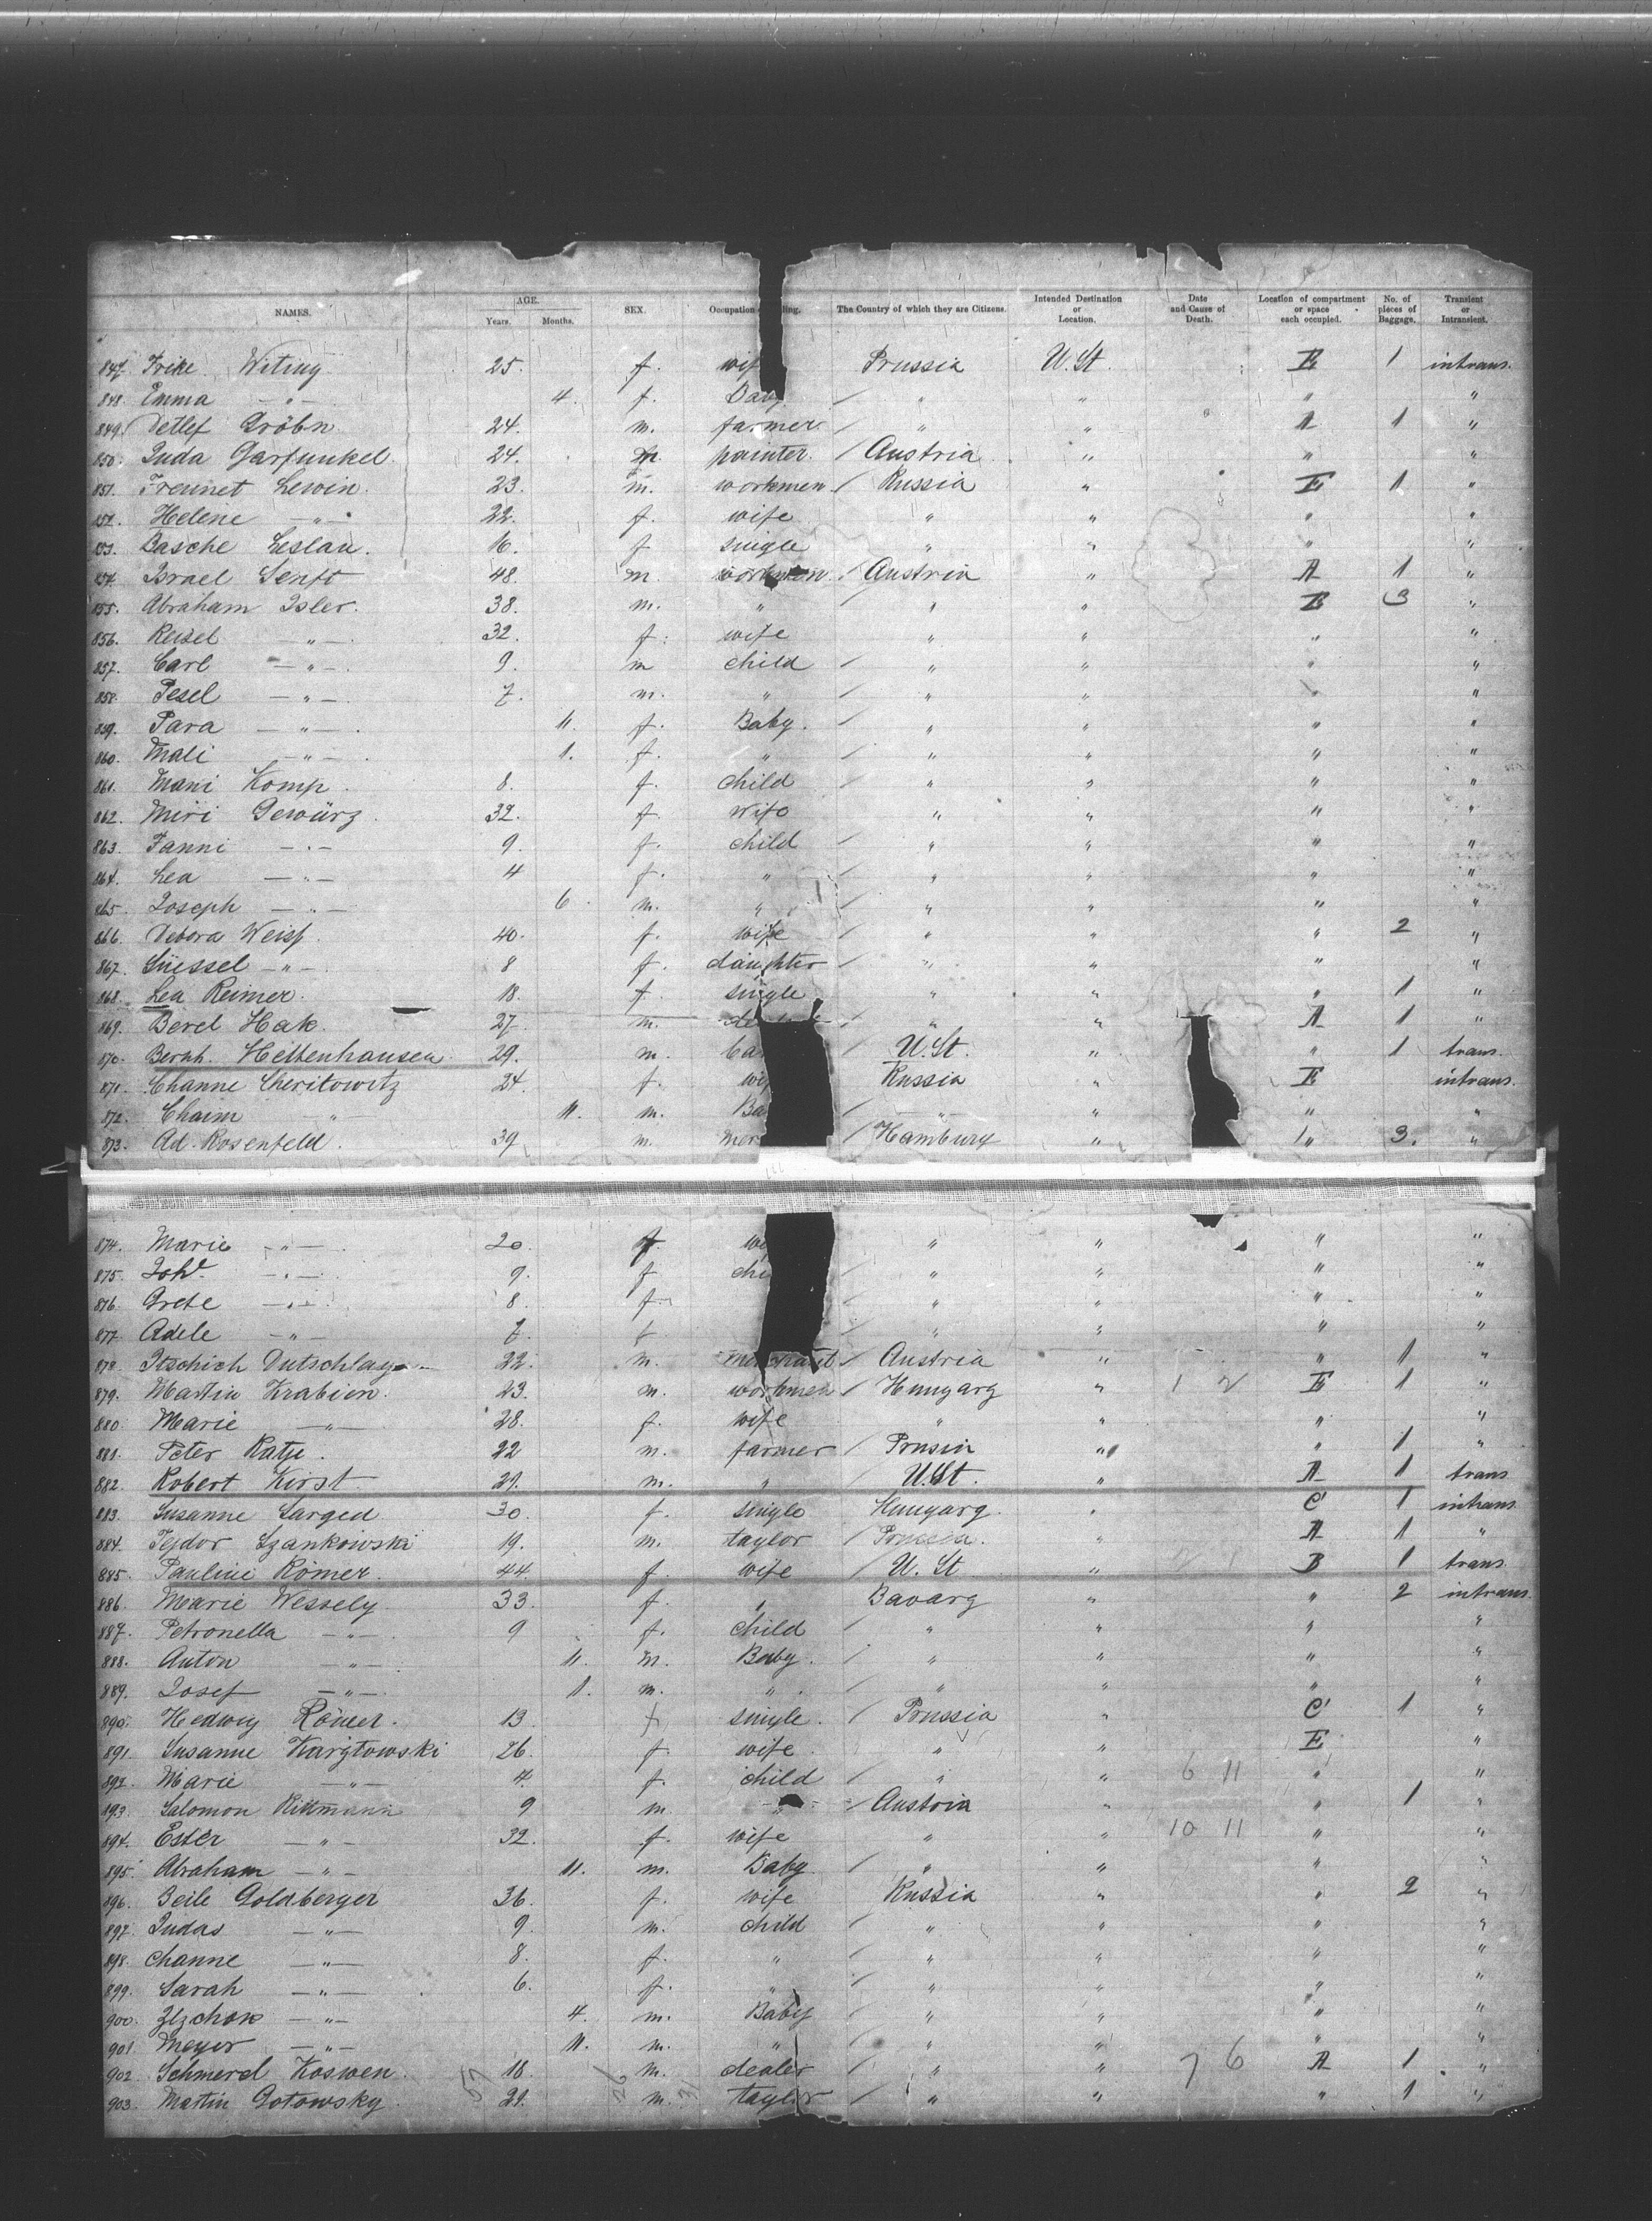 NAMES. AGE. Years. Months. SEX. Occupation ling. The Country of which they are Citizens. Intended Destination or Location. Date and Cause of Death. Location of compartment or space each occupied. No. of pieces of Baggage. Transient or Intransient.
847. Frike Witing 25. f. wif Prussia U. St. E 1 intrans.
848. Emma — " — 4. f. Baby / " " " "
849. Detlef Gröbn 24. m. farmer / " " A 1 "
850. Juda Garfunkel. 24. m. painter. / Austria " " "
851. Freunet Lewin. 23. m. workmen / Russia " E 1 "
852. Helene — " — 22. f. wife " " " "
853. Basche Leslau. 16. f single " " " "
854. Israel Senft 48. m. workmen. / Austria " A 1 "
855. Abraham Isler. 38. m. " / " " B 3 "
856. Reisel — " — 32. f. wife " " " "
857. Carl — " — 9. m child / " " " "
858. Pesel — " — 7. m. " / " " " "
859. Para — " — 11. f. Baby. / " " " "
860. Mali — " — 1. f. " / " " " "
861. Mani Komp. 8. f. child / " " " "
862. Miri Gewürz 32. f. wife " " " "
863. Fanni — " — 9. f. child / " " " "
864. Lea — " — 4 f. " / " " " "
865. Joseph — " — 6 m. " / " " " "
866. Debora Weiss. 40. f. wife / " " " 2 "
867. Süessel — " — 8 f. daughter / " " " "
868. Lea Reimer. 18. f. single " " " 1 "
869. Berel Hak. 27. m. / " " A 1 "
870. Bernh. Heltenhausen 29. m. / U. St. " " 1 trans.
871. Channe Cheritowitz 24. f. wi Russia " E intrans.
872. Chaim " 11. m. Ba / — " — " " "
873. Ad. Rosenfeld. 39 m. mer / Hamburg " " 3. "
874. Marie — " — 20. f. wi " " " "
875. Joh — " — 9. f chi / " " " "
876. Grete — " — 8. f. / " " " "
877. Adele — " — 7. f / " " " "
878. Itschich Dutschlag 22. m. merchant / Austria " " 1 "
879. Martin Krabien. 23. m. workmen / Hungarg " 1 2 E 1 "
880. Marie — " — 28. f. wife " " " "
881. Peter Katje. 22 m. farmer / Prusin " " 1 "
882. Robert Kirst 29. m. " / U. St. " A 1 trans
883. Susanne Sarged 30. f. single Hungarg. " C 1 intrans
884. Tejdor Szankowski 19. m. taylor / Prussia. " A 1 "
885. Pauline Römer. 44 f. wife / U. St. " B 1 trans
886. Marie Wessely 33. f. " Bavarg " " 2 intrans
887. Petronella — " — 9 f. child / " " " "
888. Anton — " — 11. m. Baby. / " " " "
889. Josef — " — 1. m. " / " " " "
890. Hedwig Römer. 13. f single. / Prussia " C 1 "
891. Susanne Kargtowski 26. f. wife " " E "
892. Marie — " — 4. f. child / " " 6 11 " "
893. Salomon Rittmann 9 m. " / Austria " " 1 "
894. Ester — " — 32. f. wife " " 10 11 " "
895. Abraham — " — 11. m. Baby / " " " "
896. Beile Goldberger 36. f. wife Russia " " 2 "
897. Judas — " — 9. m. child / " " " "
898. Channe — " — 8. f. " / " " " "
899. Sarah — " — 6. f. " / " " " "
900. — " — 4. m. Baby / " " " "
901. Meyer — " — 11. m. " / " " " "
902. Schmerel Koswen. 18. m. dealer / " " 7 6 A 1 "
903. Martin Gotowsky. 29. m. taylor / " " " 1 "